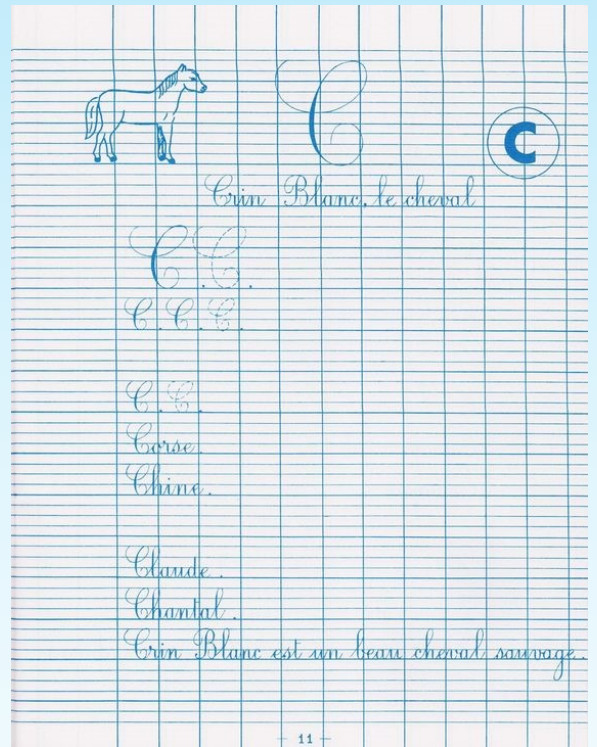 C
C
Crin Blanc, le cheval
C . C .
C . C . C .
C . C .
Corse .
Chine .
Claude .
Chantal .
Crin Blanc est un beau cheval sauvage .
- 11 -